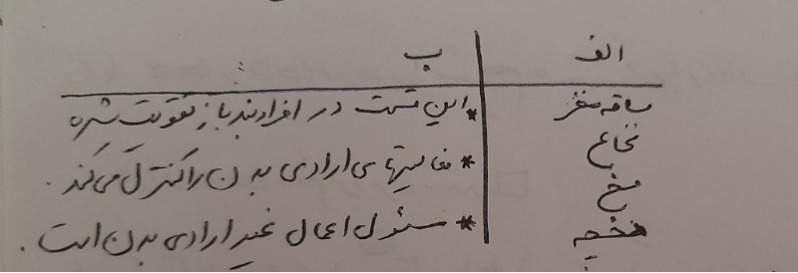 الف ب :
ساقه مغز * این قسمت در افراد بندباز تقویت شده
نخاع
مخ * فعالیتهای ارادی بدن را کنترل می کند.
مخچه * مسئول اعمال غیر ارادی بدن است.